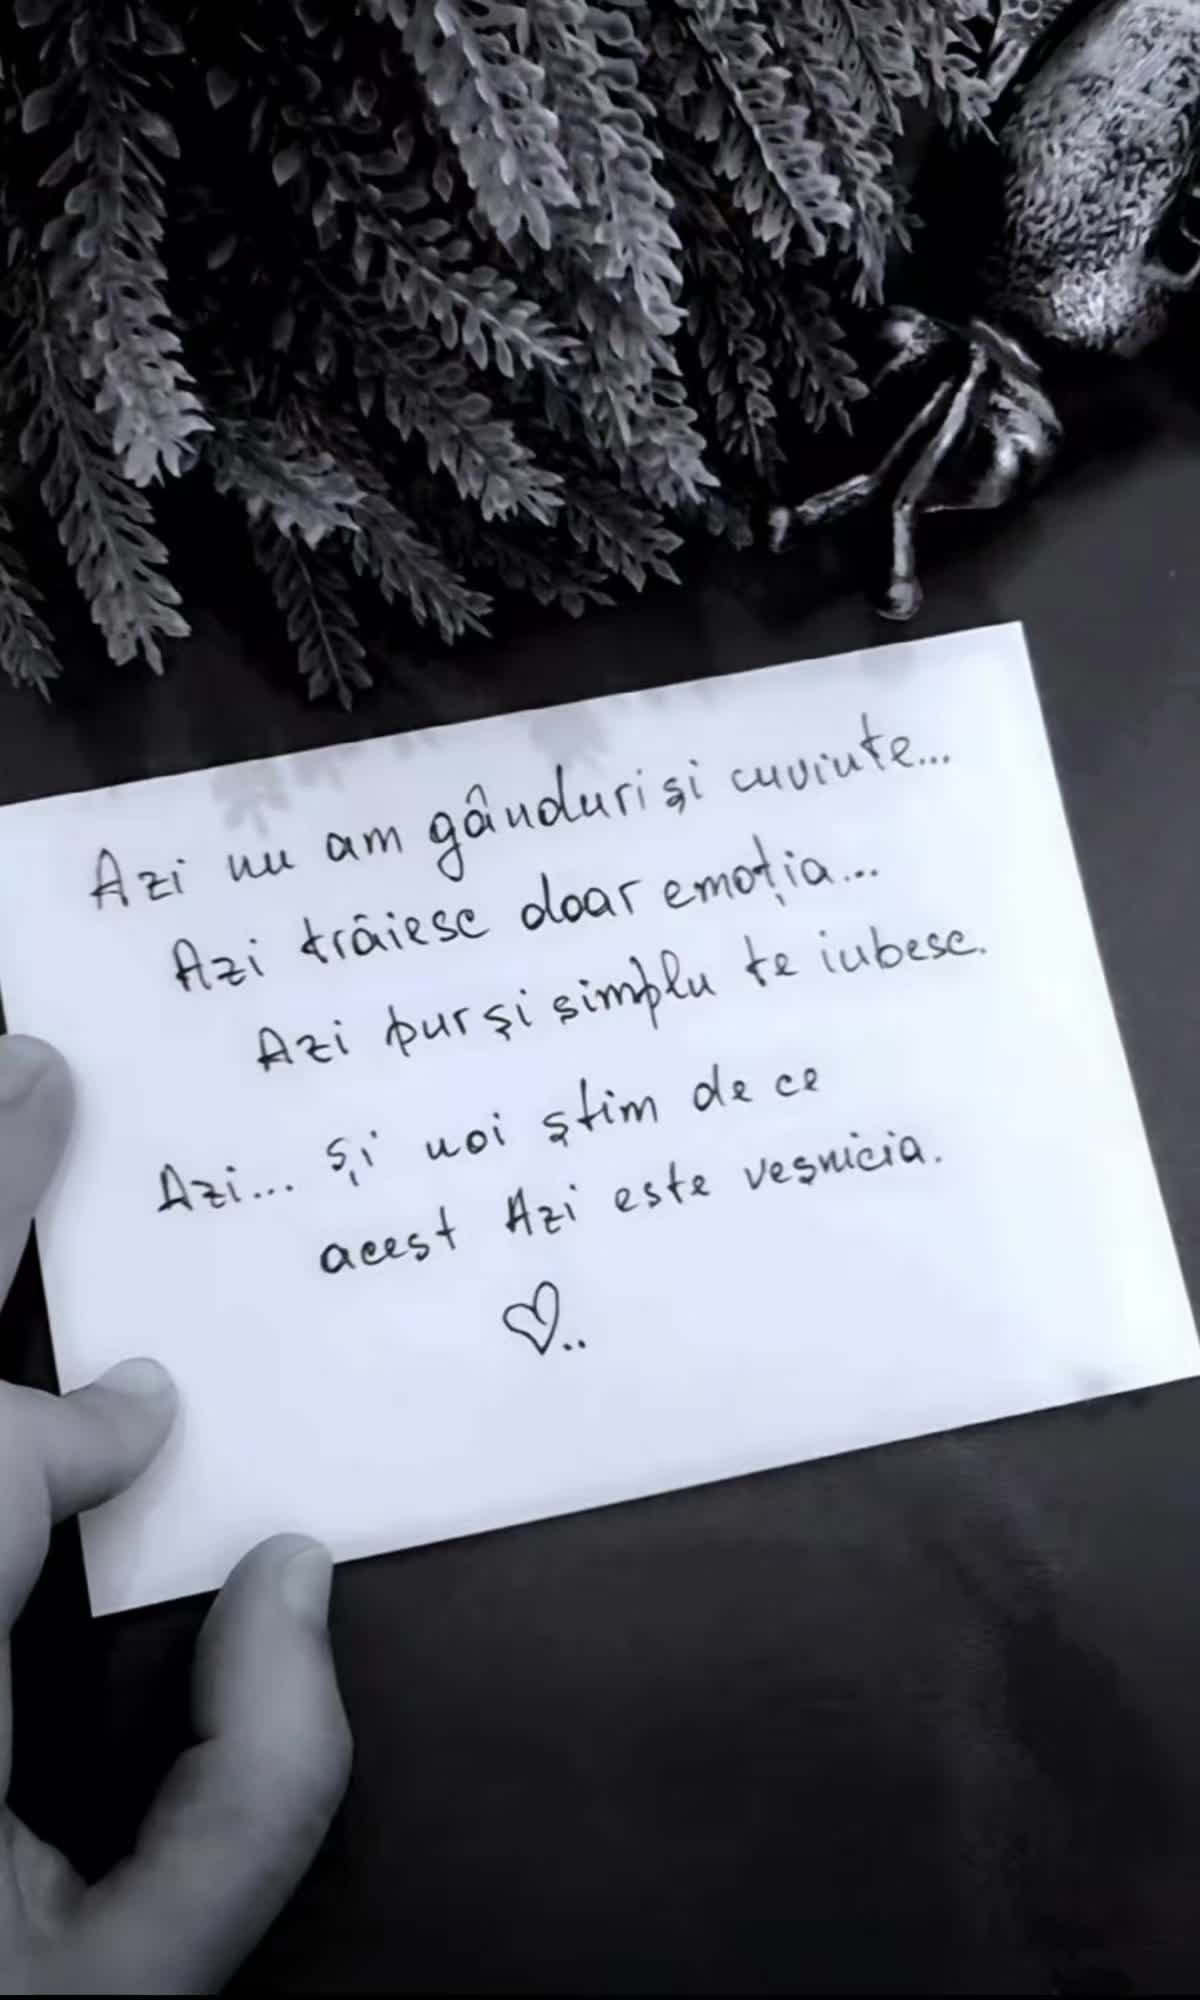 Azi nu am gânduri și cuvinte...
Azi trăiesc doar emoția...
Azi pur și simplu te iubesc.
Azi... și noi știm de ce
acest Azi este veșnicia.
♡..